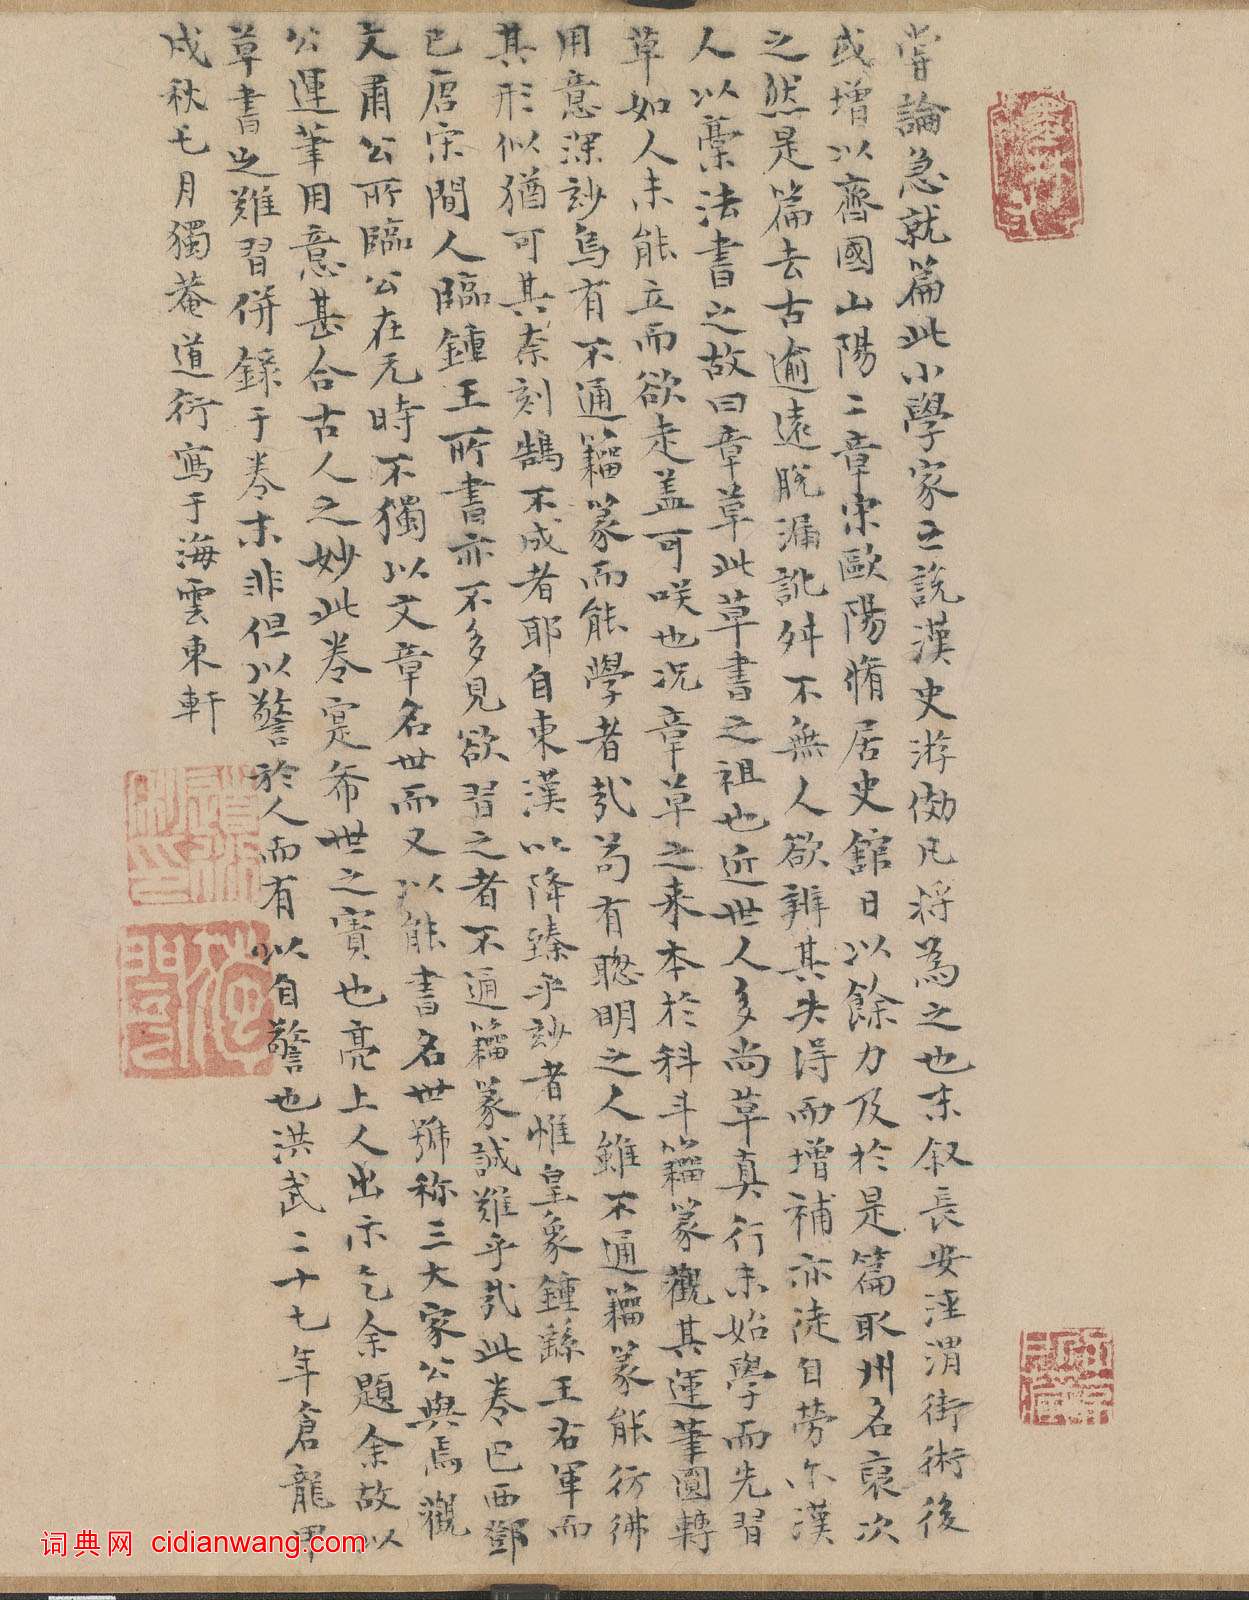 嘗論急就篇此小學家之說漢史游倣凡將為之也末叙長安涇渭街術後
或增以齊國山陽二章宋歐陽脩居史館日以餘力及於是篇取州名裒次
之然是篇去古逾遠脫漏訛舛不無人欲辨其失得而增補亦徒自勞尔漢
人以稾法書之故曰章草此草書之祖也近世人多尚草真行未始學而先習
草如人未能立而欲走盖可咲也况章草之来本於科斗籀篆觀其運筆圓轉
用意深玅烏有不通籀篆而能學者㢤苟有聰明之人雖不通籀篆能彷彿
其形似猶可其柰刻鵠不成者耶自東漢以降臻乎玅者惟皇象鍾繇王右軍而
已唐宋間人臨鍾王所書亦不多見欲習之者不通籀篆誠難乎㢤此卷巴西鄧
文肅公所臨公在元時不獨以文章名世而又以能書名世號称三大家公與焉觀
公運筆用意甚合古人之妙此卷寔希世之寶也亮上人出示乞余題余故以
草書之難習併錄于卷末非但以警於人而有以自警也洪武二十七年倉龍甲
戌秋七月獨菴道衍寫于海雲東軒
词典网 cidianwang.com